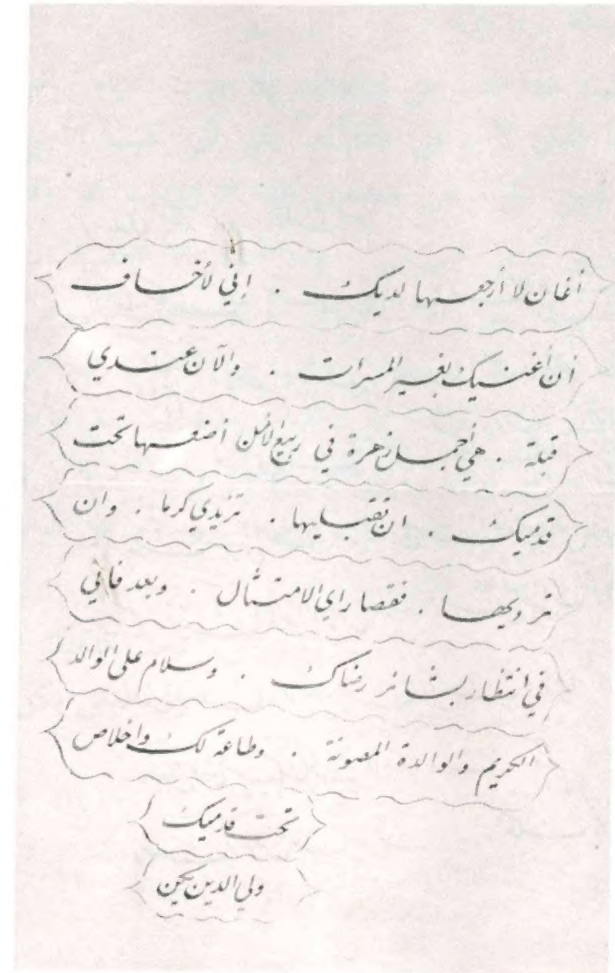 أغان لا أرجعها لديك . إني لأخاف
أن أغنيك بغير المسرات . والآن عندي
قبلة . هي أجمل زهرة في ربيع الأمل أضعها تحت
قدميك . ان تقبليها . تزيدي كرما . وان
ترديها . فقصاراي الامتثال . وبعد فاني
في انتظار بشائر رضاك . وسلام على الوالد
الكريم والوالدة المصونة . وطاعة لك واخلاص
تحت قدميك
ولي الدين يكن